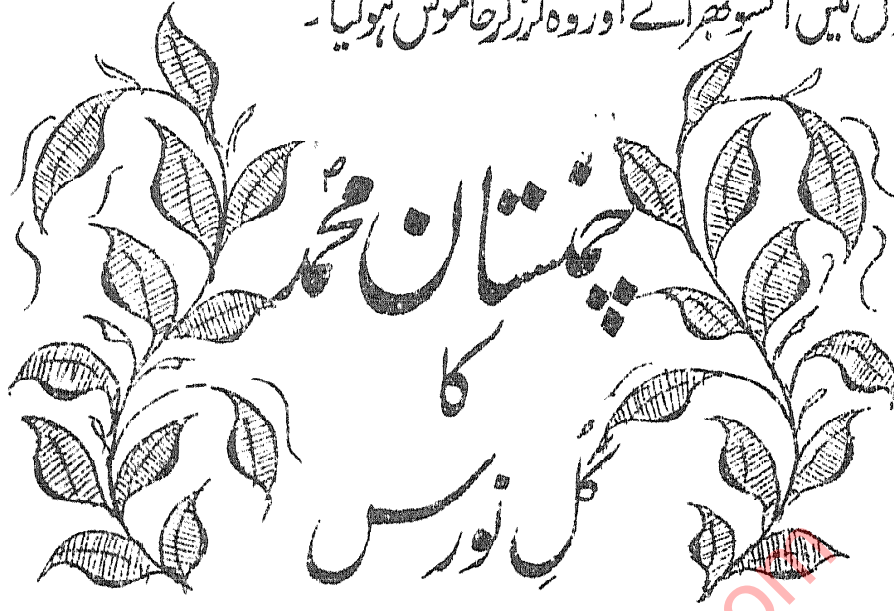 میں آنسو بھر آئے اور وہ لرز کر خاموش ہو گیا۔
چمنستان محمدؐ
کا
گلِ نورس
om